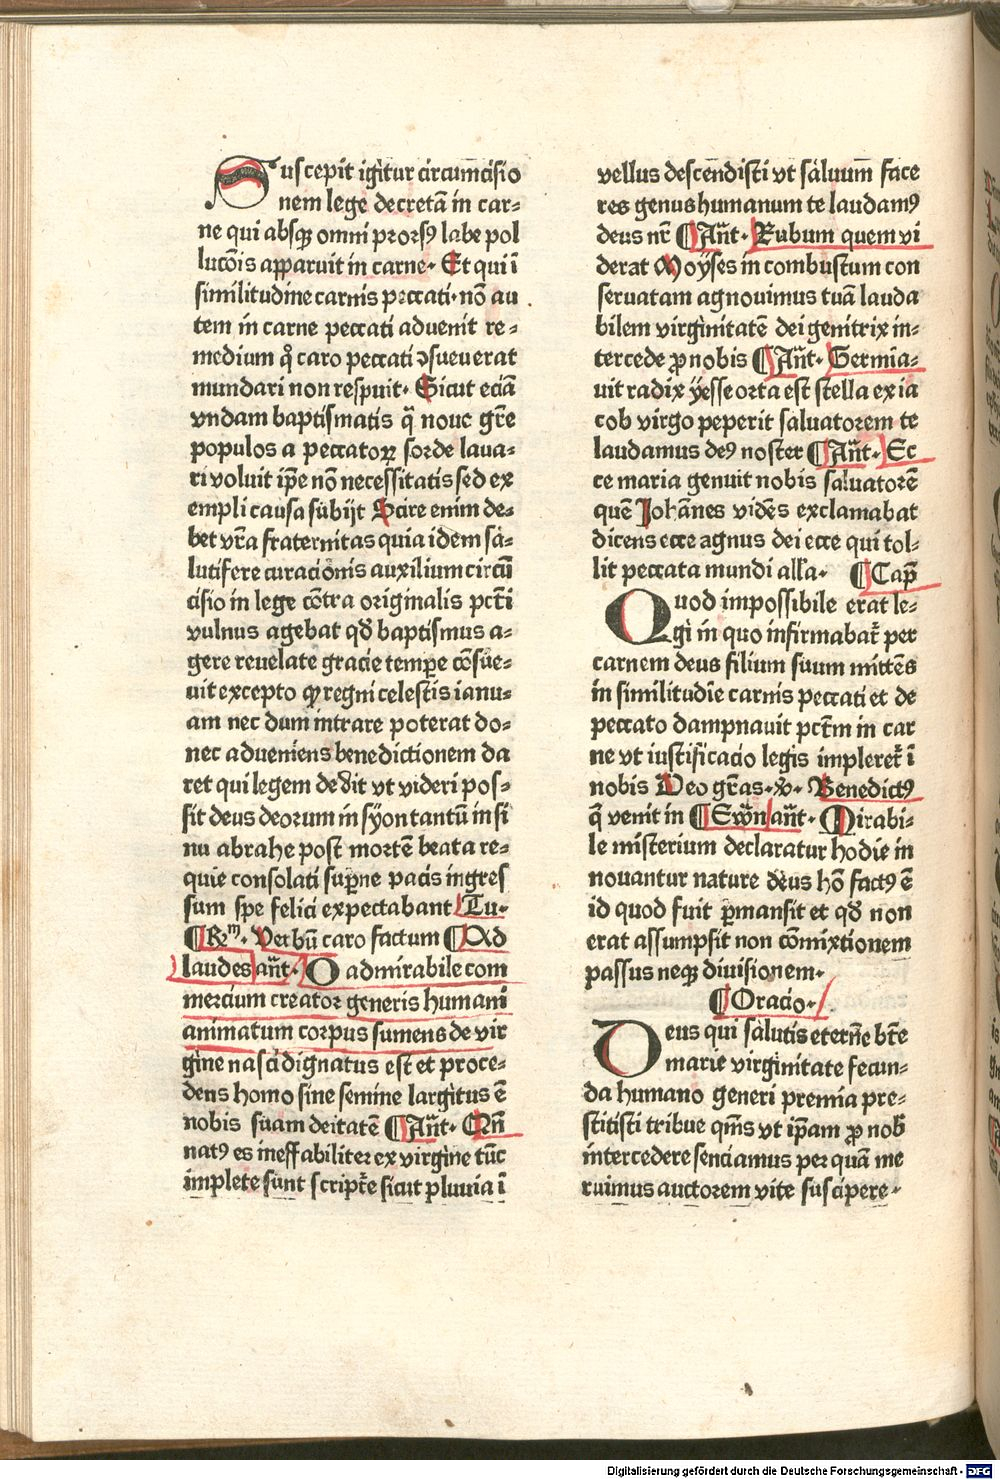 Suscepit igitur circumcisio
nem lege decretā in car⸗
ne qui absqȝ omni prorsꝰ labe pol
lucōis apparuit in carne. Et qui ī
similitudine carnis peccati. nō au
tem in carne peccati advenit re⸗
medium qͦ caro peccati ꝯsueuerat
mundari non respuit. Sicut eciā
vndam baptismatis q̄ noue gr̄e
populos a peccatoꝝ sorde laua⸗
ri voluit ip̄e nō necessitatis sed ex
empli causa subijt Scire enim de⸗
bet vr̄a fraternitas quia idem sa⸗
lutifere curacionis auxilium circū
cisio in lege cōtra originalis pcti
vulnus agebat qď baptismus a⸗
gere reuelate gracie tempe cōsue⸗
uit excepto ꝙ regni celestis ianu⸗
am nec dum intrare poterat do⸗
nec adueniens benedictionem da
ret qui legem dedit vt videri pos⸗
sit deus deorum in syon tantū in si
nu abrahe post mortē beata re⸗
quie consolati supne pacis ingres
sum spe felici expectabant Tu.
¶ Rm. Verbū caro factum ¶ Ad
laudes an̄t. O admirabile com
mercium creator generis humani
animatum corpus sumens de vir
gine nasci dignatus est et proce⸗
dens homo sine semine largitus ē
nobis suam deitatē ¶ An̄t. Qn̄
natꝰ es ineffabiliter ex virgine tūc
implete sunt scripte sicut pluuia ī
vellus descendisti vt saluum face
res genus humanum te laudamꝰ
deus nr̄ ¶ An̄t. Rubum quem vi
derat Moyses in combustum con
seruatam agnouimus tuā lauda
bilem virginitatē dei genitrix in⸗
tercede ꝓ nobis ¶ An̄t. Germia⸗
uit radix yesse orta est stella ex ia
cob virgo peperit saluatorem te
laudamus deꝰ noster ¶ An̄t. Ec
ce maria genuit nobis saluatorē
quē Johānes vidēs exclamabat
dicens ecce agnus dei ecce qui tol⸗
lit peccata mundi all'a. ¶ Cap̄
Quod impossibile erat le⸗
gi in quo infirmabat̄ per
carnem deus filium suum mittēs
in similitudīe carnis peccati et de
peccato dampnauit pctm̄ in car
ne vt iustificacio legis impleret̄ ī
nobis Deo gr̄as. v̇. Benedictꝰ
q̄ venit in ¶ Ewn̄ an̄t. Mirabi⸗
le misterium declaratur hodie in
nouantur nature deus hō factꝰ ē
id quod fuit ꝑmansit et qď non
erat assumpsit non cōmixtionem
passus neqȝ diuisionem.
¶ Oracio.
Deus qui salutis eterne bt̄e
marie virginitate fecun⸗
da humano generi premia pre⸗
stitisti tribue qm̄s vt ip̄am ꝓ nob
intercedere senciamus per quā me
ruimus auctorem vite suscipere.
Digitalisierung gefördert durch die Deutsche Forschungsgemeinschaft - DFG